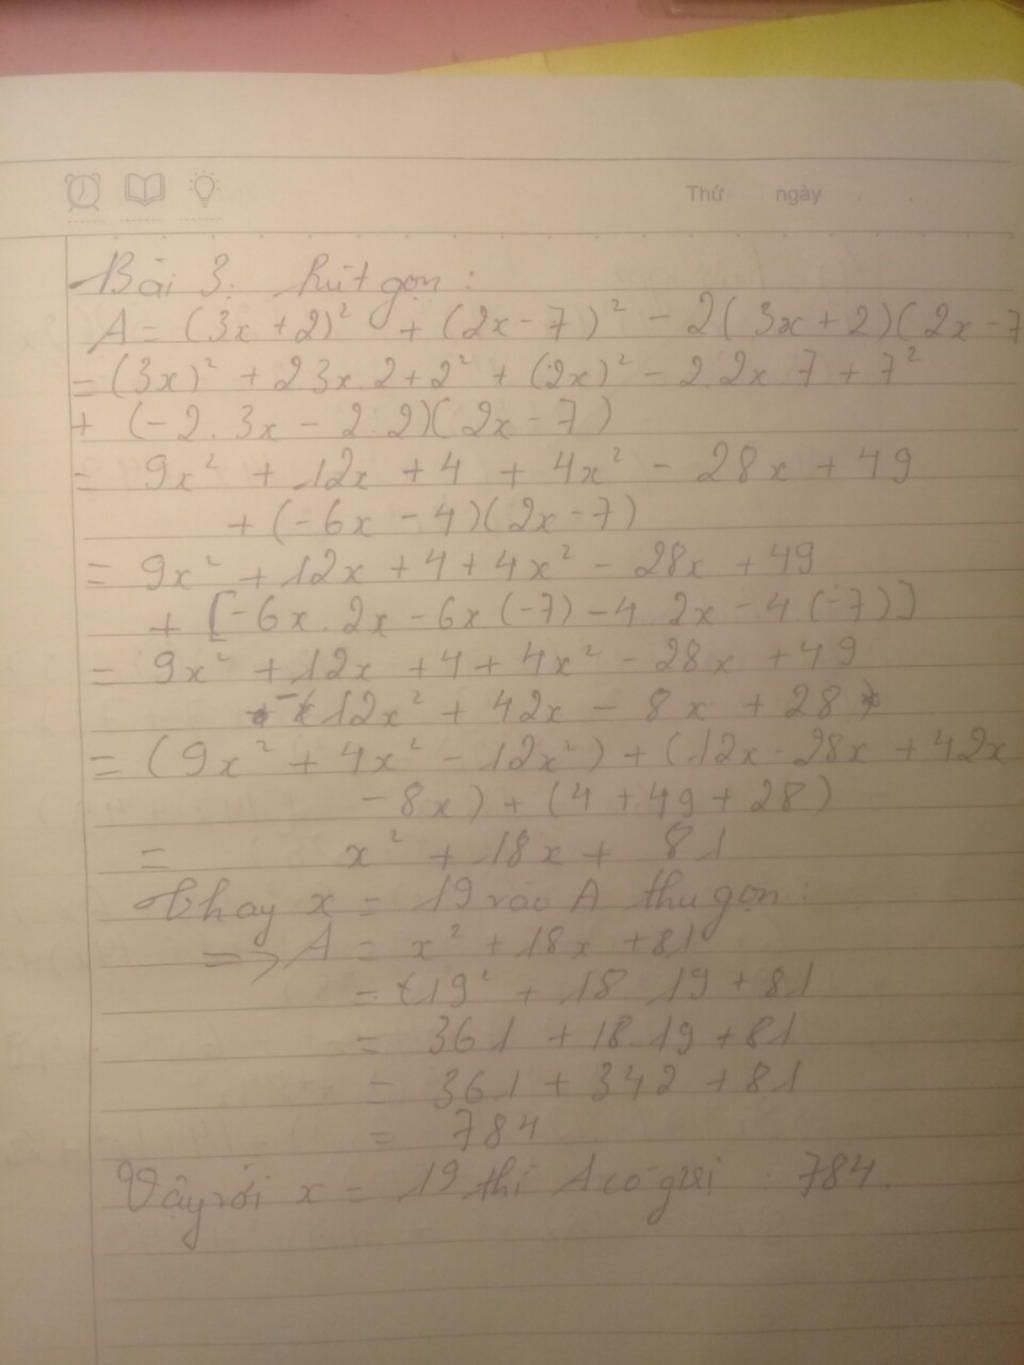 Thứ ngày
Bài 3: Rút gọn:
A = (3x + 2)² + (2x - 7)² - 2(3x + 2)(2x - 7
= (3x)² + 2 3x 2 + 2² + (2x)² - 2 2x 7 + 7²
+ (-2. 3x - 2.2)(2x - 7)
= 9x² + 12x + 4 + 4x² - 28x + 49
+ (-6x - 4)(2x - 7)
= 9x² + 12x + 4 + 4x² - 28x + 49
+ [-6x. 2x - 6x (-7) - 4. 2x - 4. (-7)]
= 9x² + 12x + 4 + 4x² - 28x + 49
- 12x² + 42x - 8x + 28
= (9x² + 4x² - 12x²) + (12x - 28x + 42x
- 8x) + (4 + 49 + 28)
= x² + 18x + 81
Thay x = 19 vào A thu gọn:
=> A = x² + 18x + 81
= 19² + 18 19 + 81
= 361 + 18.19 + 81
= 361 + 342 + 81
= 784
Vậy với x = 19 thì A có giá trị 784.